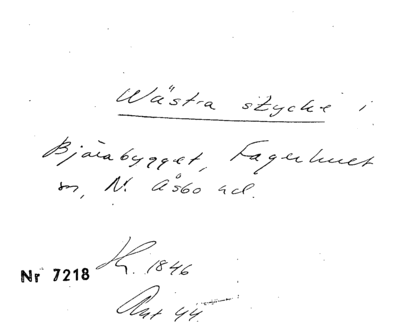 Wästra stycke i
Bjärabygget, Fagerhult
sn, N. Åsbo hd.
Nr 7218
H. 1846
Ant 44